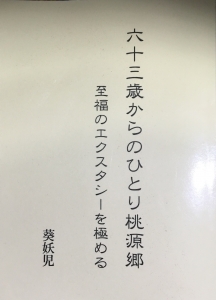 六十三歳からのひとり桃源郷
至福のエクスタシーを極める
葵妖児